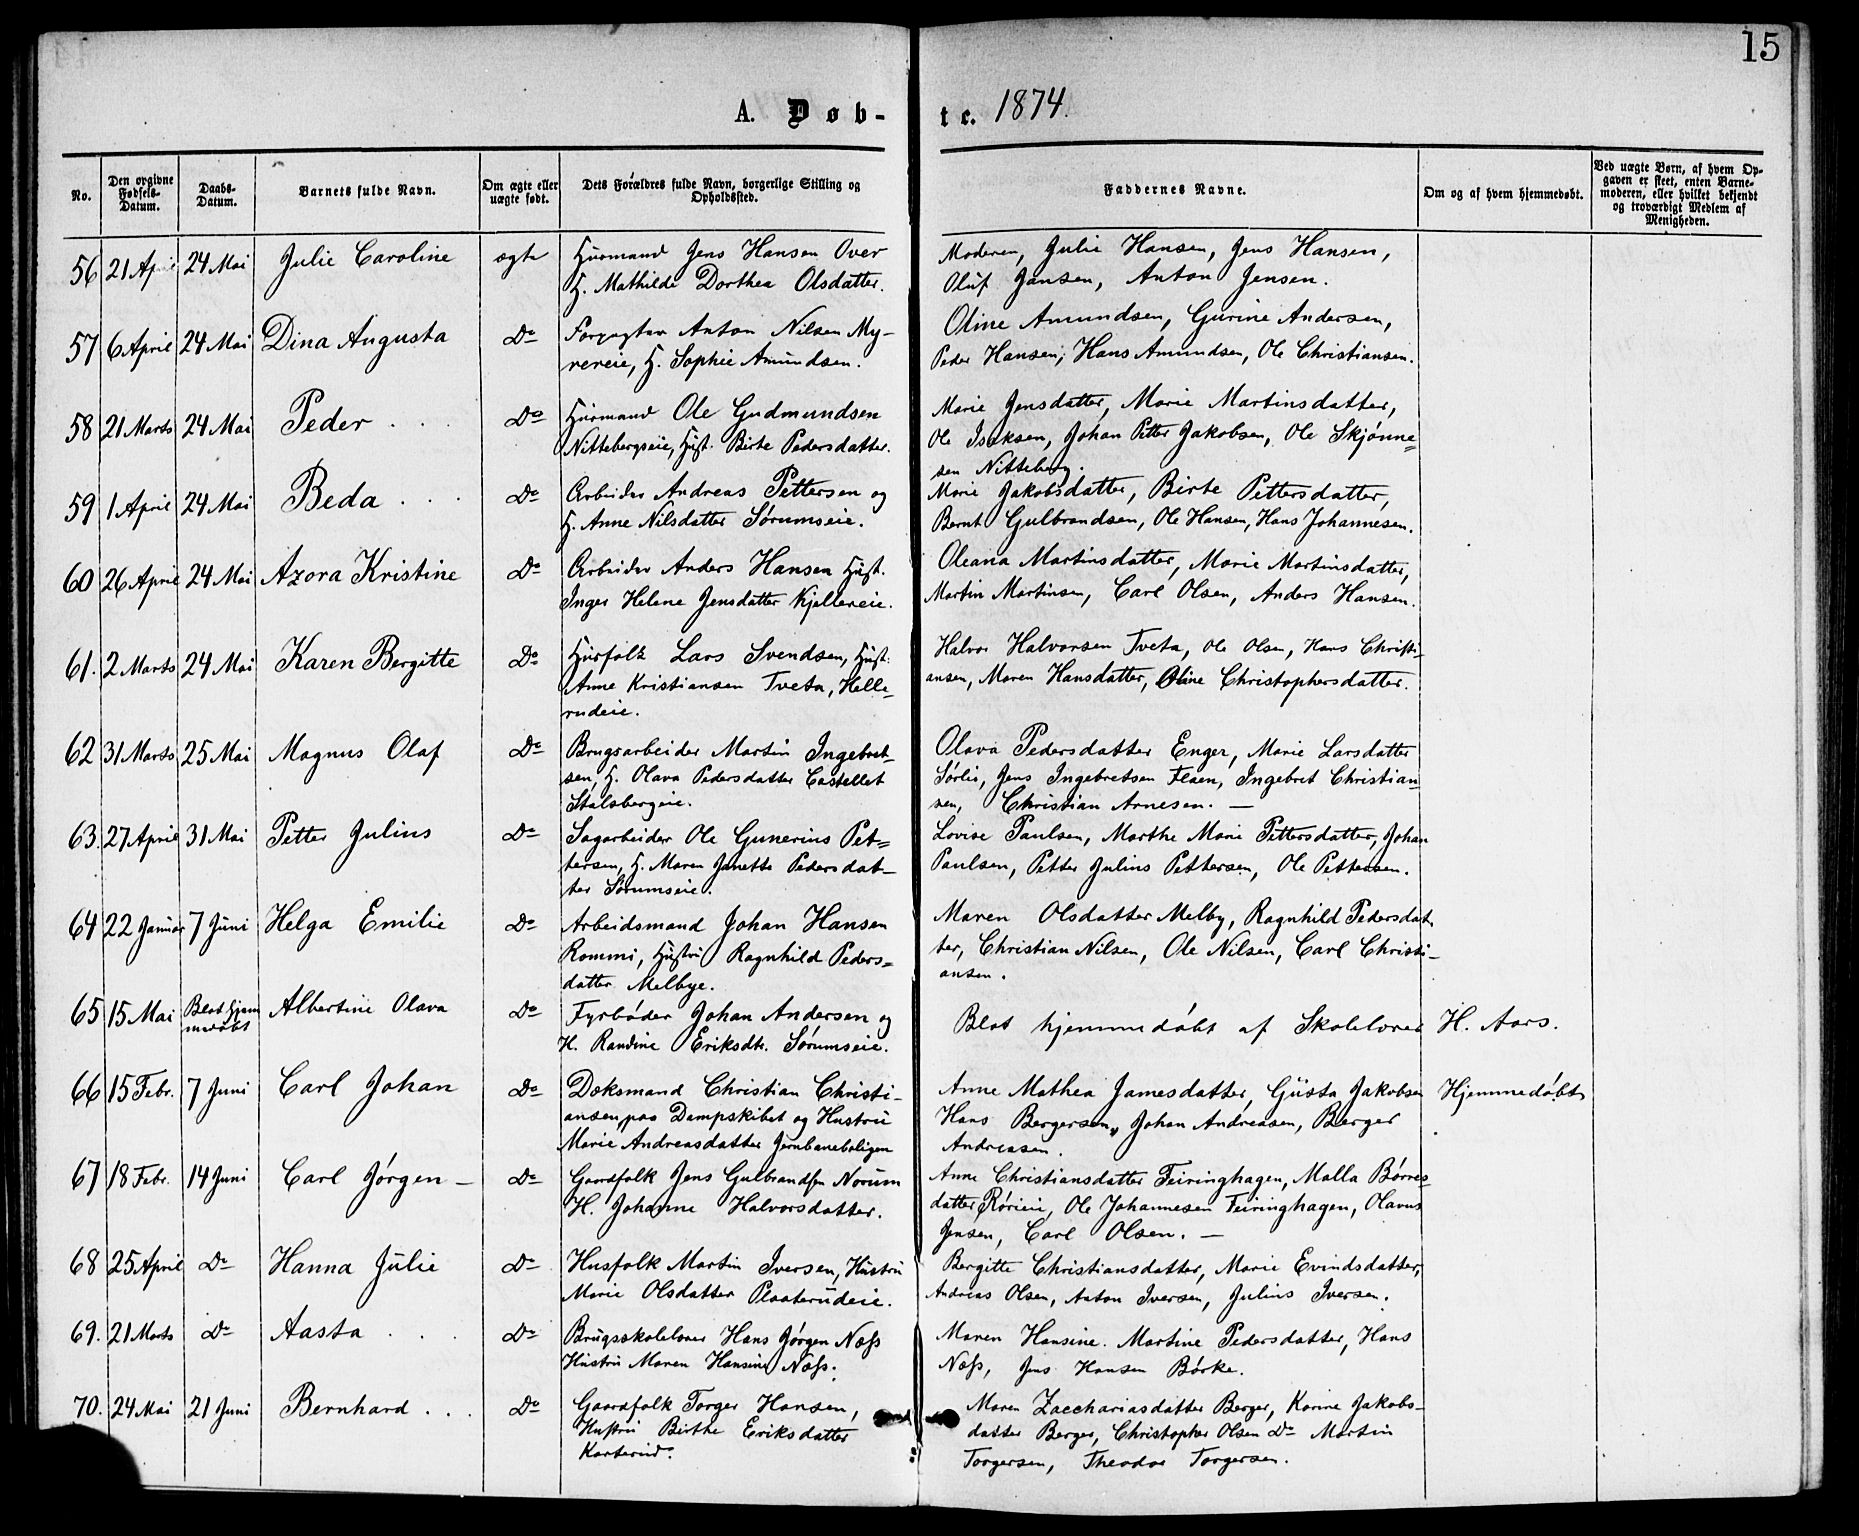 15
A. Døb-te. 1874.
No.
Den opgivne Fødsels-Datum.
Daabs-Datum.
Barnets fulde Navn.
Om ægte eller uægte født.
Dets Forældres fulde Navn, borgerlige Stilling og Opholdssted.
Faddernes Navne.
Om og af hvem hjemmedøbt.
Ved uægte Børn, af hvem Opgaven er skeet, enten Barnemoderen, eller hvilket bekjendt og troværdigt Medlem af Menigheden.
56 21 April 24 Mai Julie Caroline ægte Husmand Jens Hansen Over
H. Mathilde Dorthea Olsdatter.
Moderen, Julie Hansen, Jens Hansen,
Oluf Jansen, Anton Jensen.
57 6 April 24 Mai Dina Augusta Do Forpagter Anton Nilsen My-
rereie, H. Sophie Amundsen.
Oline Amundsen, Gurine Andersen,
Peder Hansen, Hans Amundsen, Ole Christiansen.
58 21 Marts 24 Mai Peder . . . Do Husmand Ole Gudmundsen
Nittebergseie, Hust. Birte Pedersdatter.
Marie Jensdatter, Marie Martinsdatter,
Ole Isaksen, Johan Petter Jakobsen, Ole Skjønne=
sen Nitteberg.
59 1 April 24 Mai Beda . . . Do Arbeider Andreas Pettersen og
H. Anne Nilsdatter Sørumseie.
Marie Jakobsdatter, Birte Pettersdatter,
Bernt Gulbrandsen, Ole Hansen, Hans Johannesen.
60 26 April 24 Mai Azora Kristine Do Arbeider Anders Hansen Hust.
Inger Helene Jensdatter Kjellereie.
Oleana Martinsdatter, Marie Martinsdatter,
Martin Martinsen, Carl Olsen, Anders Hansen.
61. 2 Marts 24 Mai Karen Bergitte Do Husfolk Lars Svendsen, Hust.
Anne Kristiansen Tveta, Helle-
rudeie.
Halvor Halvorsen Tveta, Ole Olsen, Hans Christi-
ansen, Maren Hansdatter, Oline Christophersdatter.
62 31 Marts 25 Mai Magnus Olaf Do Brugsarbeider Martin Ingebret-
sen, H. Olava Pedersdatter Castellet
Stalsbergeie.
Olava Pedersdatter Enger, Marie Larsdatter
Sørlie, Jens Ingebretsen Flaen, Ingebret Christian-
sen, Christian Arnesen. —
63. 27 April 31 Mai Petter Julius Do Sagarbeider Ole Gunerius Pet=
tersen, H. Maren Janette Pedersdat-
ter Sørumseie.
Lovise Paulsen, Marthe Marie Pettersdatter, Johan
Paulsen, Petter Julius Pettersen, Ole Pettersen.
64 22 Januar 7 Juni Helga Emilie Do Arbeidsmand Johan Hansen
Rommi, Hustru Ragnhild Peders=
datter Melbye.
Maren Olsdatter Melby, Ragnhild Pedersdat-
ter, Christian Nilsen, Ole Nilsen, Carl Christi-
ansen.
65 15 Mai Blot hjem
medøbt Albertine Olava Do Fyrbøder Johan Andersen og
H. Randine Eriksdtr. Sørumseie.
Blot hjemmedøbt af Skolelærer H. Aars.
66 15 Febr. 7 Juni Carl Johan Do Dæksmand Christian Christi-
ansen paa Dampskibet og Hustru
Marie Andreasdatter Jernbaneboligen
Anne Mathea Jamesdatter, Gusta Jakobsen Hjemmedøbt
Hans Bergersen, Johan Andreasen, Berger
Andreasen.
67 18 Febr. 14 Juni Carl Jørgen — Do Gaardfolk Jens Gulbrandsen Norum
H. Johanne Halvorsdatter.
Anne Christiansdatter Feiringhagen, Malla Børres-
datter Rørieie, Ole Johannesen Feiringhagen, Olavus
Jensen, Carl Olsen. —
68 25 April Do Hanna Julie Do Husfolk Martin Iversen, Hustru
Marie Olsdatter Plaaterudeie.
Bergitte Christiansdatter, Marie Evindsdatter,
Andreas Olsen, Anton Iversen, Julius Iversen.
69. 21 Marts Do Aasta . . . Do Brugsskolelærer Hans Jørgen Næss
Hustru Maren Hansine Næss.
Maren Hansine. Martine Pedersdatter, Hans
Næss, Jens Hansen Børke.
70. 24 Mai 21 Juni Bernhard . . . Do Gaardfolk Torger Hansen,
Hustru Birthe Eriksdatter
Karterud.
Maren Zacchariasdatter Berger, Karine Jakobs-
datter Berger, Christopher Olsen Do Martin
Torgersen, Theodor Torgersen.